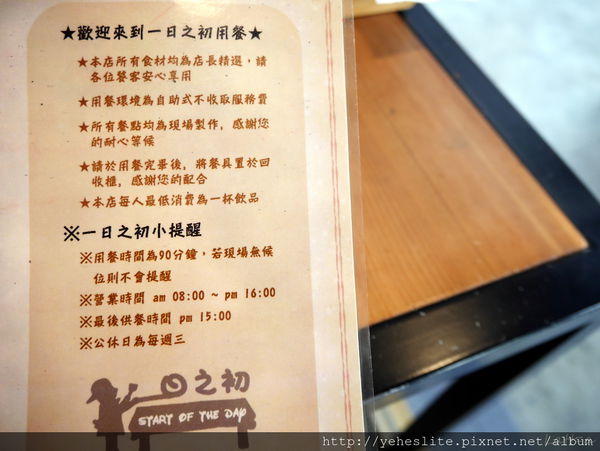 ★歡迎來到一日之初用餐★
★本店所有食材均為店長精選，請
各位饕客安心享用
★用餐環境為自助式不收取服務費
★所有餐點均為現場製作，感謝您
的耐心等候
★請於用餐完畢後，將餐具置於回
收櫃，感謝您的配合
★本店每人最低消費為一杯飲品
※一日之初小提醒
※用餐時間為90分鐘，若現場無候
位則不會提醒
※營業時間 am 08:00 ~ pm 16:00
※最後供餐時間 pm 15:00
※公休日為每週三
一日之初
START OF THE DAY
http://yeheslite.pixnet.net/album